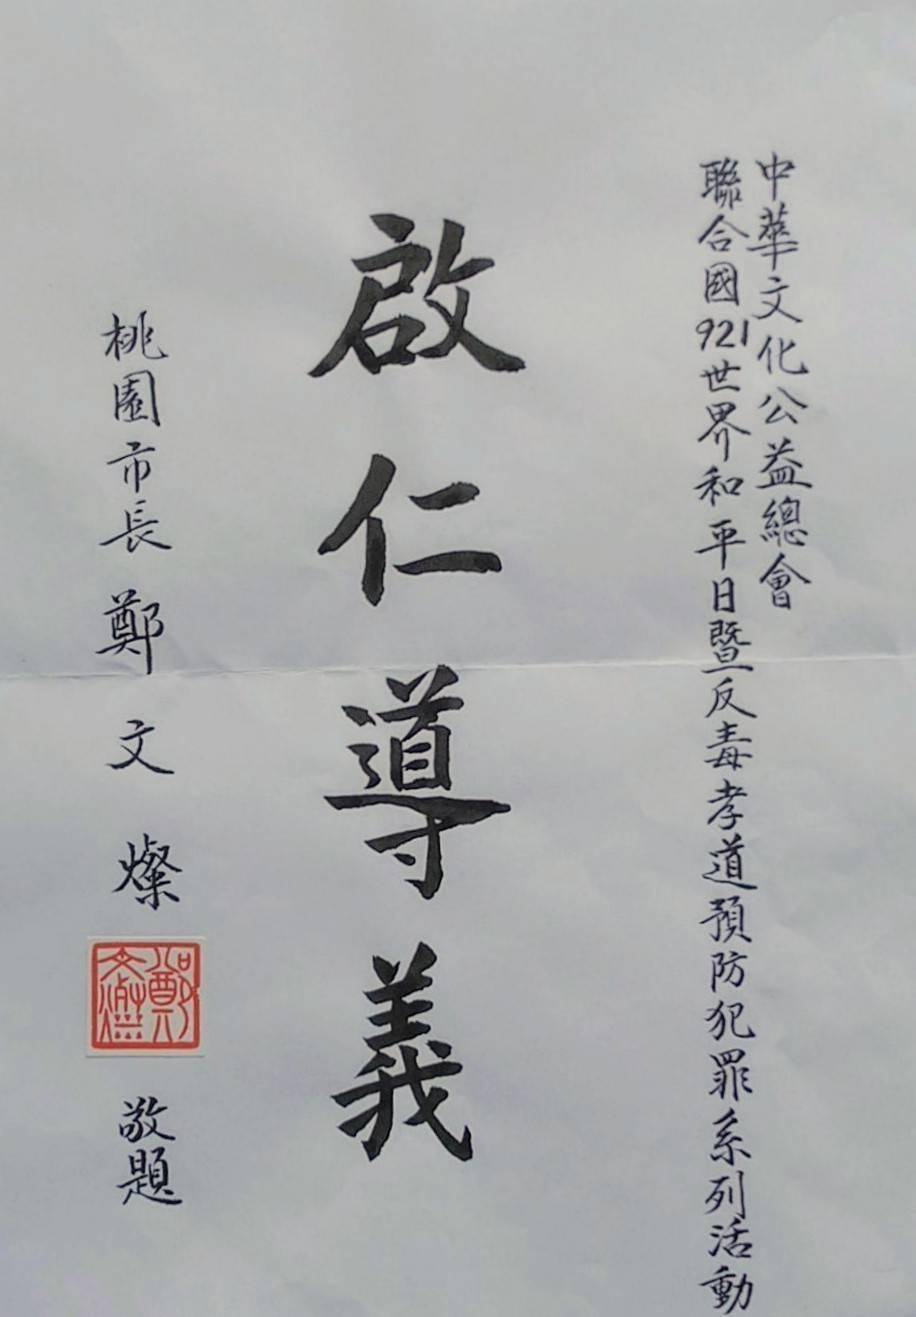 中華文化公益總會
聯合國921世界和平日暨反毒孝道預防犯罪系列活動
啟仁導義
桃園市長鄭文燦
鄭文燦
敬題